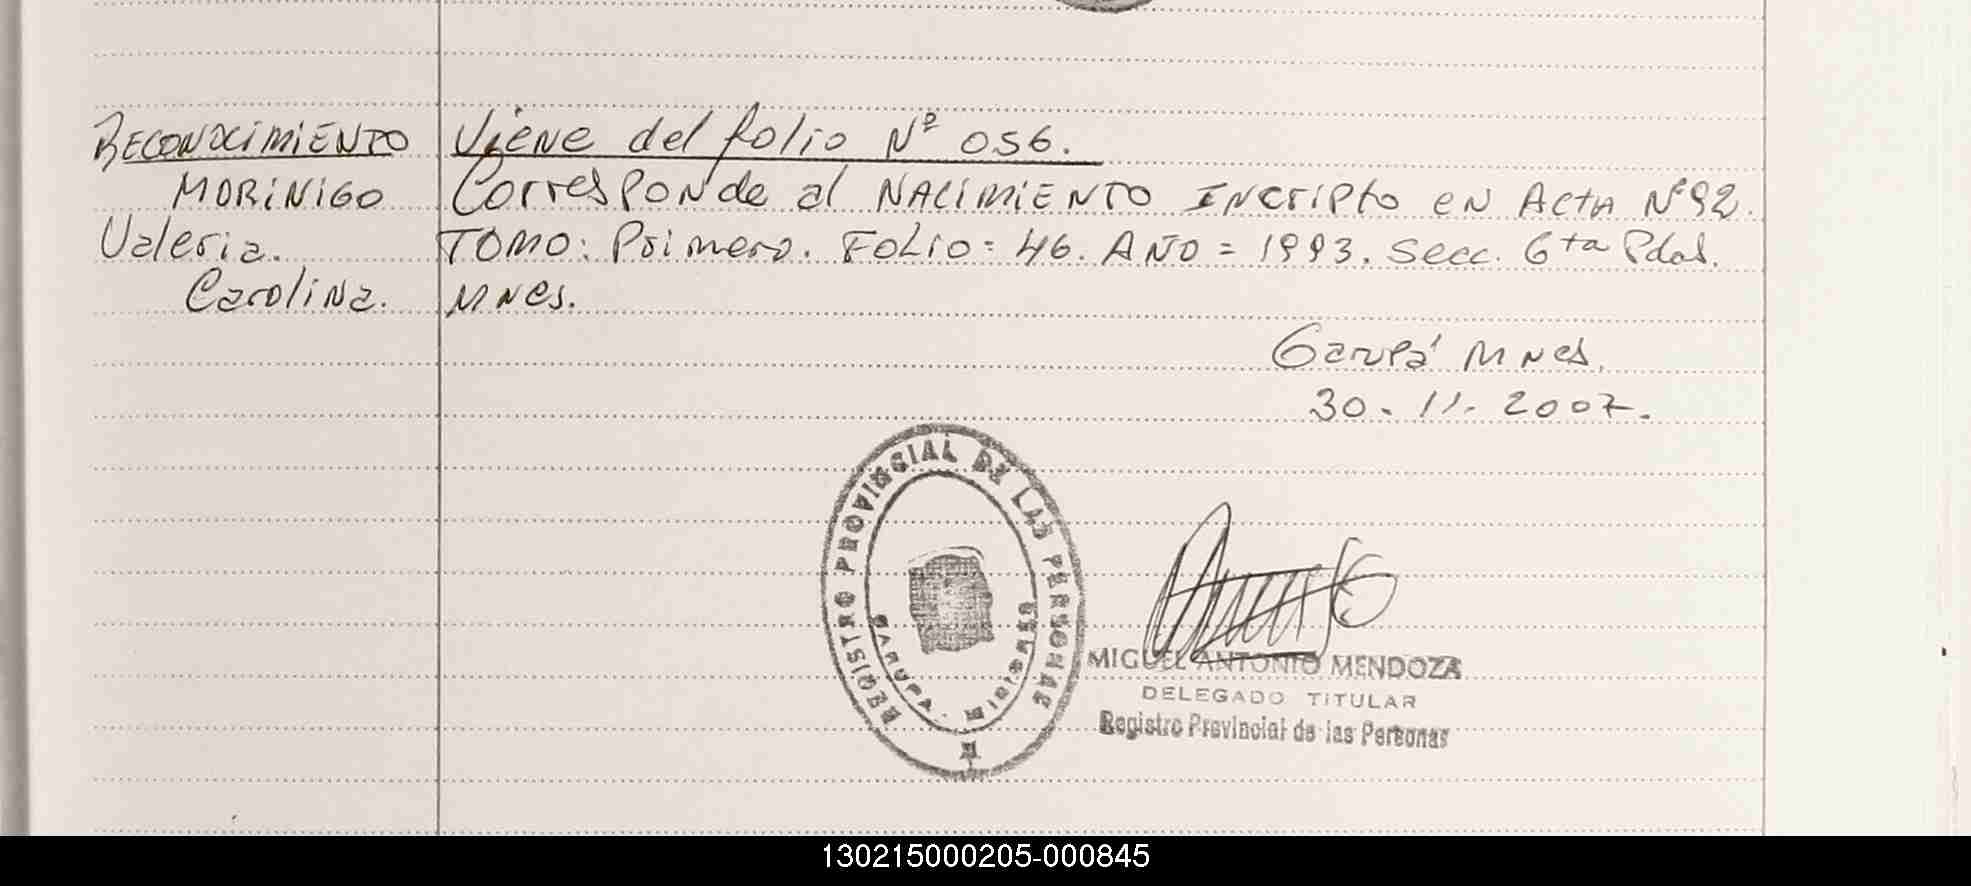 RECONOCIMIENTO
MORINIGO
Valeria.
Carolina.
Viene del folio Nº 056.
Corresponde al NACIMIENTO INcripto en Acta Nº 92.
TOMO: Primero. FOLIO: 46. AÑO = 1993. Secc. 6ta Pdas.
MNES.
Garupá MNES.
30. 11. 2007.
REGISTRO PROVINCIAL DE LAS PERSONAS
GARUPA
MIGUEL ANTONIO MENDOZA
DELEGADO TITULAR
Registro Provincial de las Personas
130215000205-000845